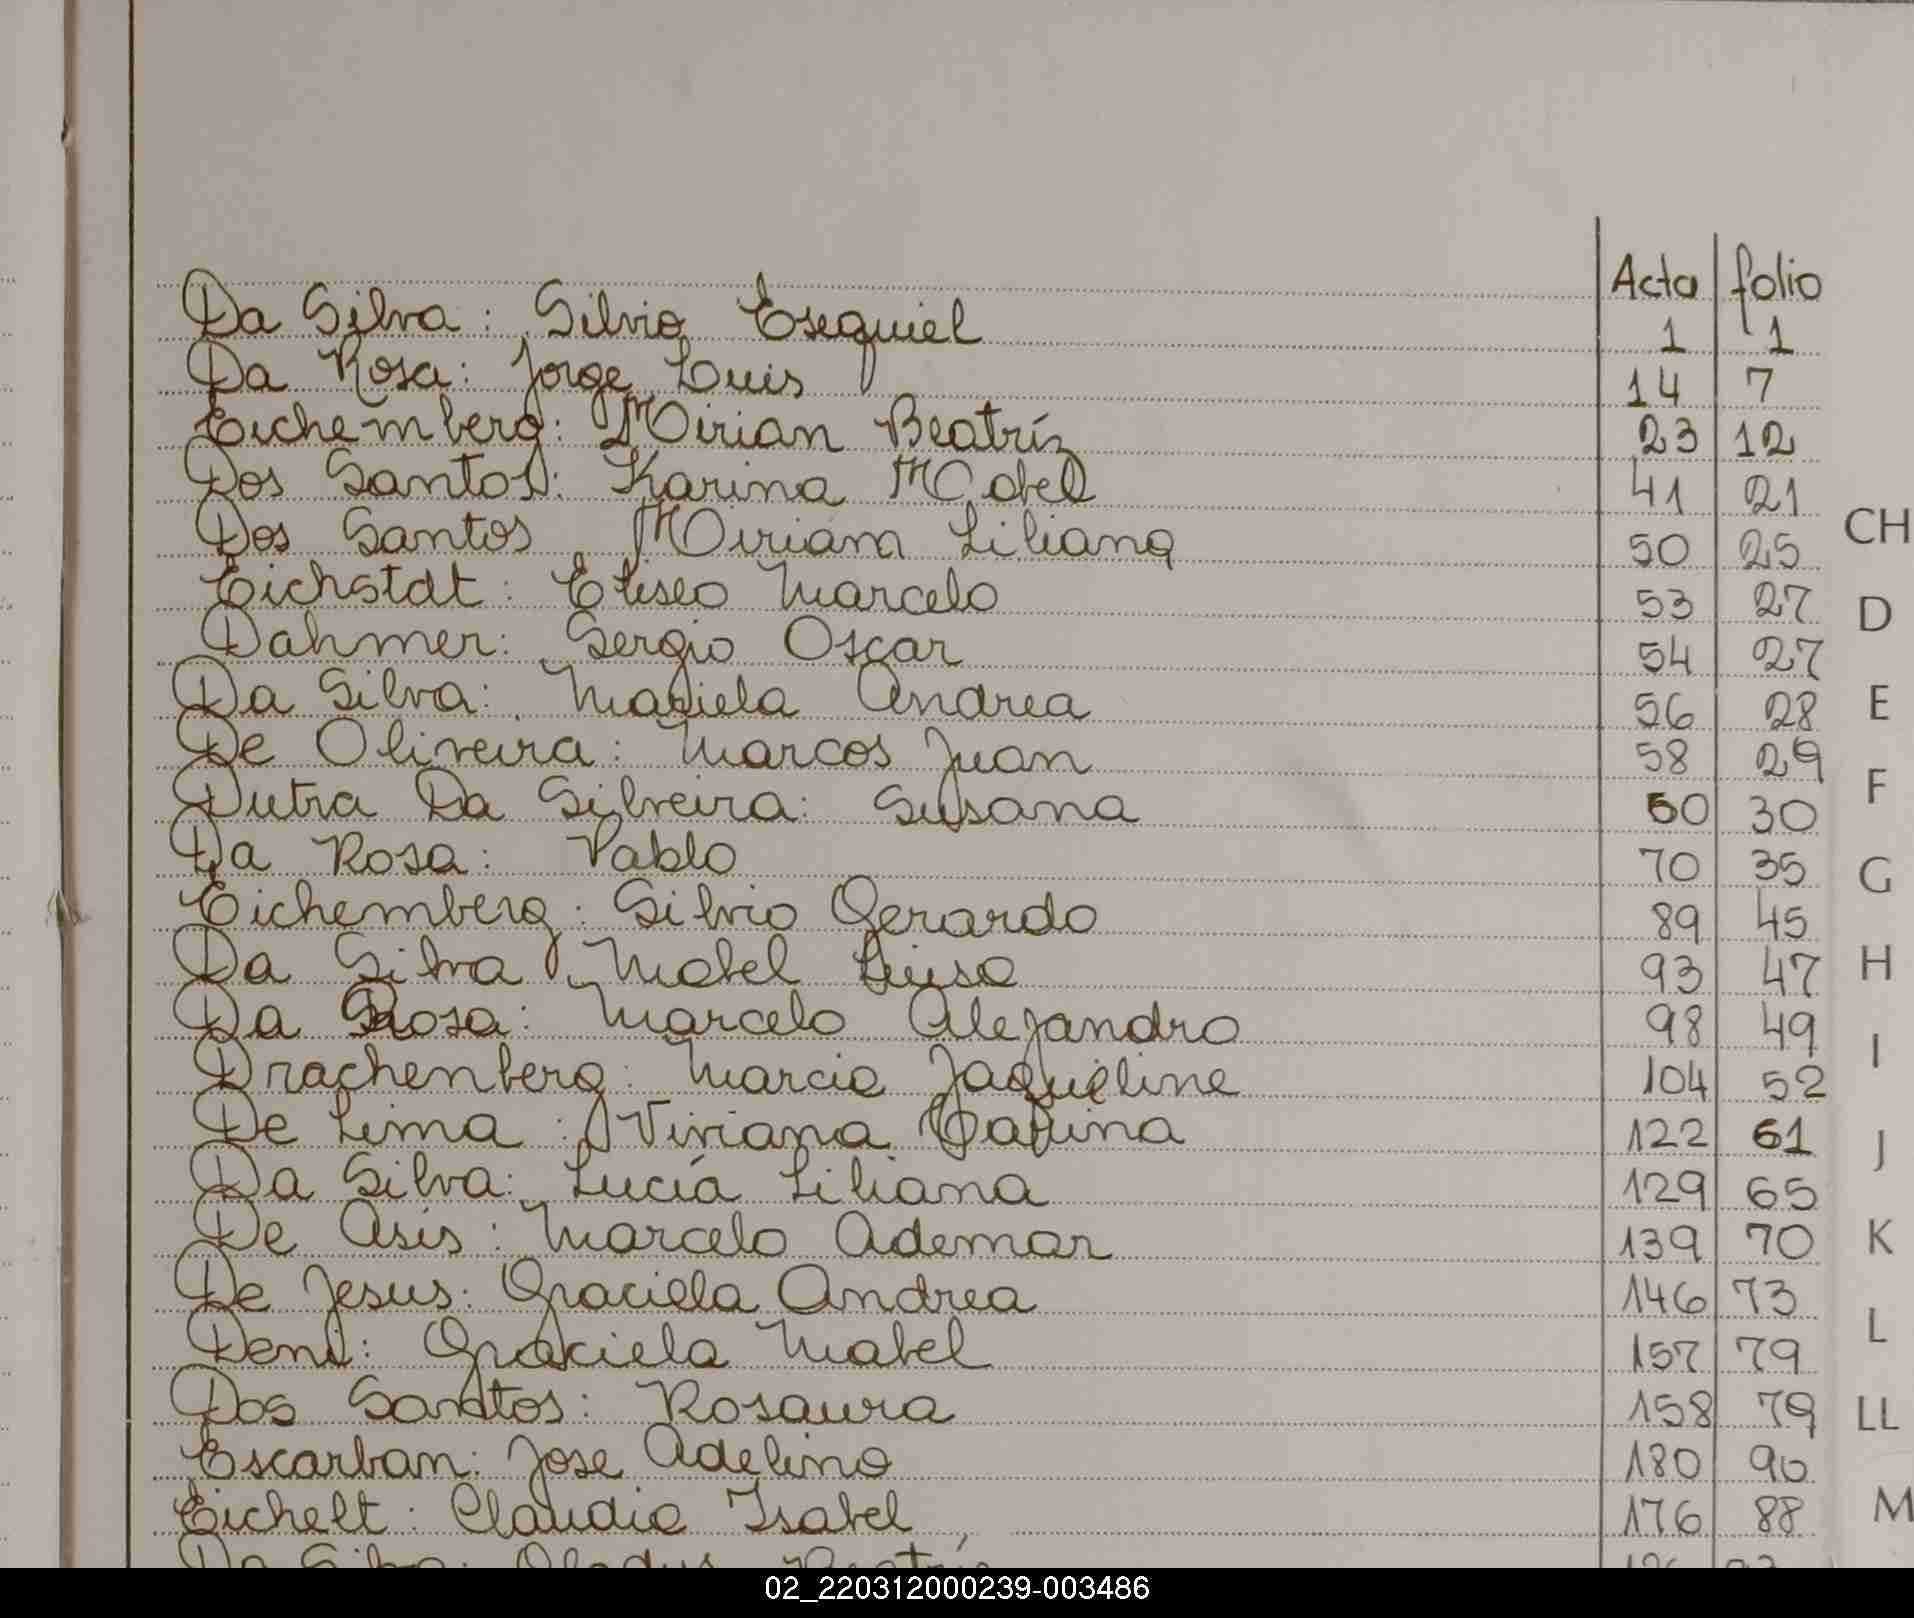 Acta folio
Da Silva: Silvio Esequiel 1 1
Da Rosa: Jorge Luis 14 7
Eichemberg: Mirian Beatríz 23 12
Dos Santos: Karina Mabel 41 21
Dos Santos Miriam Liliana 50 25
CH
Eichstdt: Eliseo Marcelo 53 27
D
Dahmer: Sergio Oscar 54 27
Da Silva: Mariela Andrea 56 28
E
De Oliveira: Marcos Juan 58 29
F
Dutra Da Silveira: Susana 60 30
Da Rosa: Pablo 70 35
G
Eichemberg: Silvio Gerardo 89 45
Da Silva Mabel Luisa 93 47
H
Da Rosa: Marcelo Alejandro 98 49
I
Drachenberg: Marcia Jaqueline 104 52
De Lima: Viviana Carina 122 61
J
Da Silva: Lucía Liliana 129 65
De Asis: Marcelo Ademar 139 70
K
De Jesus: Graciela Andrea 146 73
L
Deni: Graciela Mabel 157 79
Dos Santos: Rosaura 158 79
LL
Escarban: Jose Adelino 180 90
Eichelt: Claudia Isabel 176 88
M
Da Silva: Gladys Beatríz
02_220312000239-003486